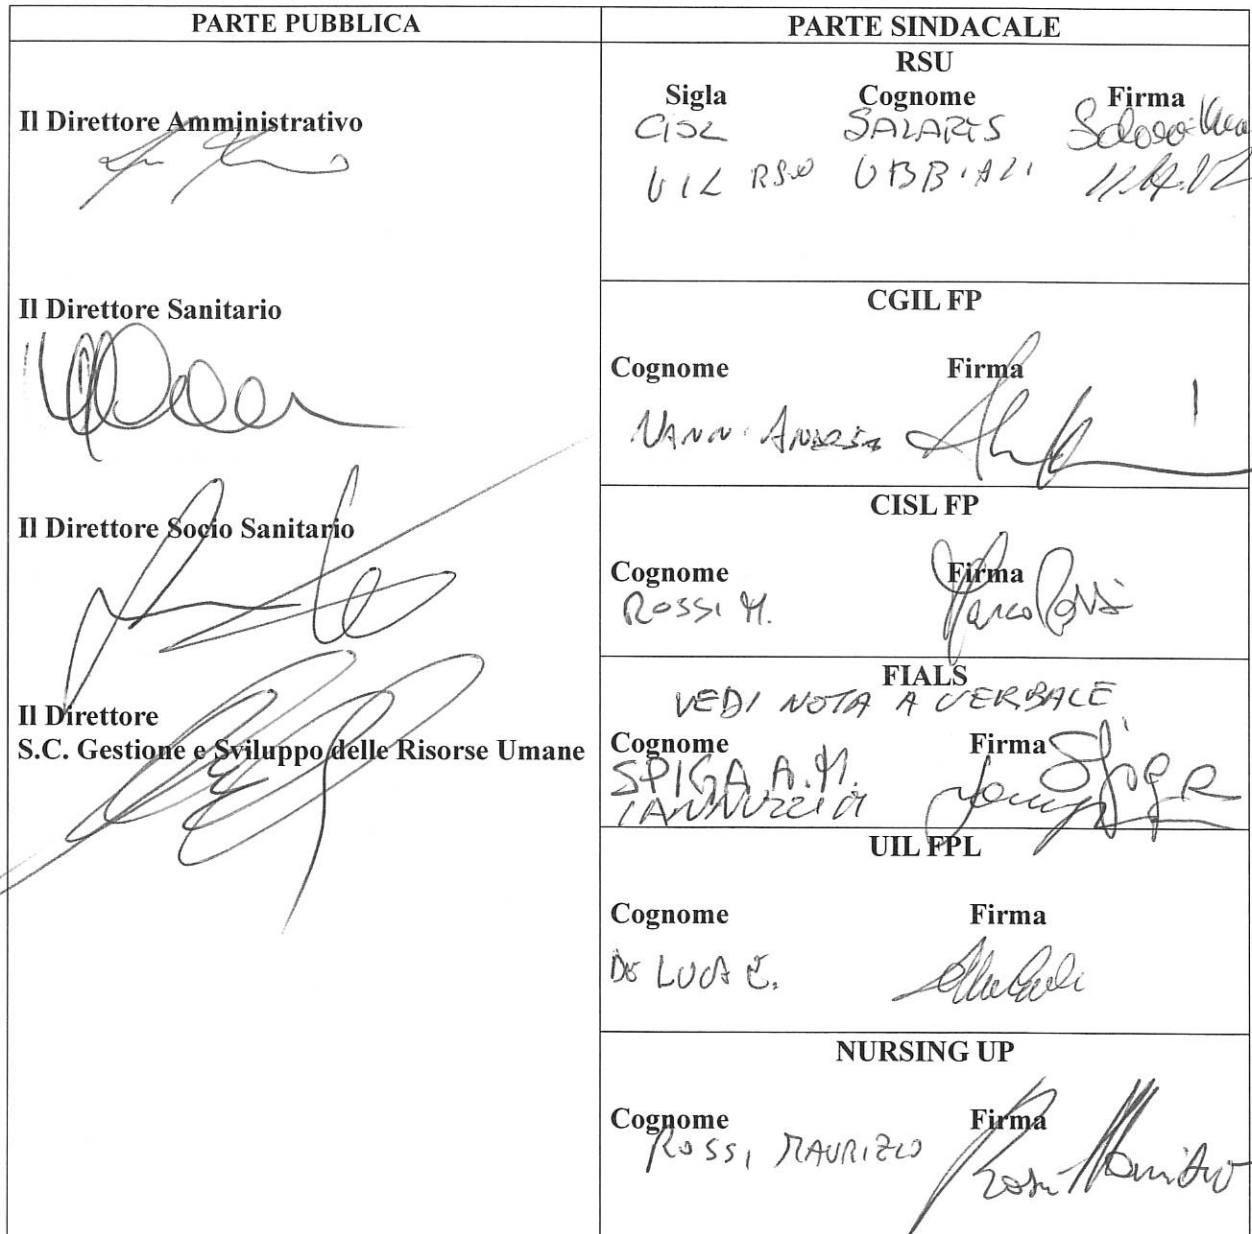 PARTE PUBBLICA
Il Direttore Amministrativo
Il Direttore Sanitario
Il Direttore Socio Sanitario
Il Direttore
S.C. Gestione e Sviluppo delle Risorse Umane
PARTE SINDACALE
RSU
Sigla Cognome Firma
CISL SALARIS
UIL RSU UBBIALI
CGIL FP
Cognome Firma
NANNI ANDREA
CISL FP
Cognome Firma
ROSSI M. Marco Rossi
FIALS
VEDI NOTA A VERBALE
Cognome Firma
SPIGA A.M. Spiga
IANNUZZI
UIL FPL
Cognome Firma
DE LUCA E.
NURSING UP
Cognome Firma
ROSSI MAURIZIO Rossi Maurizio